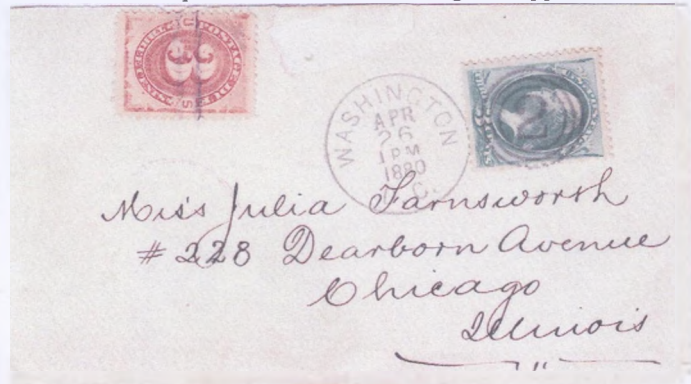 POSTAGE DUE
3
WASHINGTON
APR
26
1 PM
1880
D.C.
Miss Julia Farnsworth
# 228 Dearborn Avenue
Chicago
Illinois